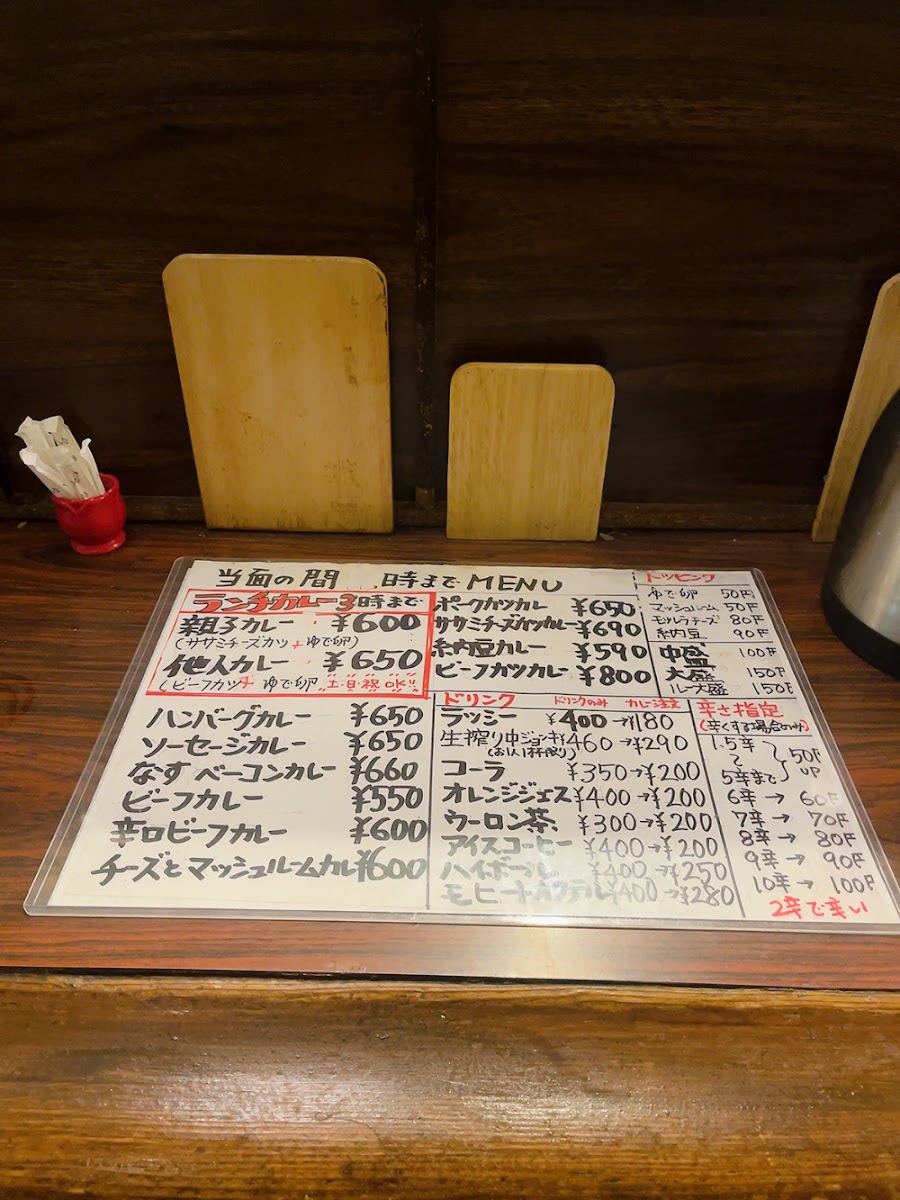 当面の間 時まで MENU
ランチカレー3時まで
親子カレー ¥600
(ササミチーズカツ+ゆで卵)
他人カレー ¥650
(ビーフカツ+ゆで卵 "土・日・祝OK!!"
ハンバーグカレー ¥650
ソーセージカレー ¥650
なす ベーコンカレー ¥660
ビーフカレー ¥550
辛口ビーフカレー ¥600
チーズとマッシュルームカレ ¥600
ポークカツカレ ¥650
ササミチーズカツカレー ¥690
納豆カレー ¥590
ビーフカツカレー ¥800
ドリンク ドリンクのみ カレー注文
ラッシー ¥400→¥180
生搾り中ジョッキ ¥460→¥290
(お1人1杯限り)
コーラ ¥350→¥200
オレンジジュース ¥400→¥200
ウーロン茶 ¥300→¥200
アイスコーヒー ¥400→¥200
ハイボール ¥400→¥250
モヒートカクテル ¥400→¥280
トッピング
ゆで卵 50円
マッシュルーム 50円
モツレラチーズ 80円
納豆 90円
中盛 100円
大盛 150円
ルー大盛 150円
辛さ指定
(辛くする場合のみ)
1.5辛
〜 50円
5辛まで UP
6辛→ 60円
7辛→ 70円
8辛→ 80円
9辛→ 90円
10辛→ 100円
2辛で辛い